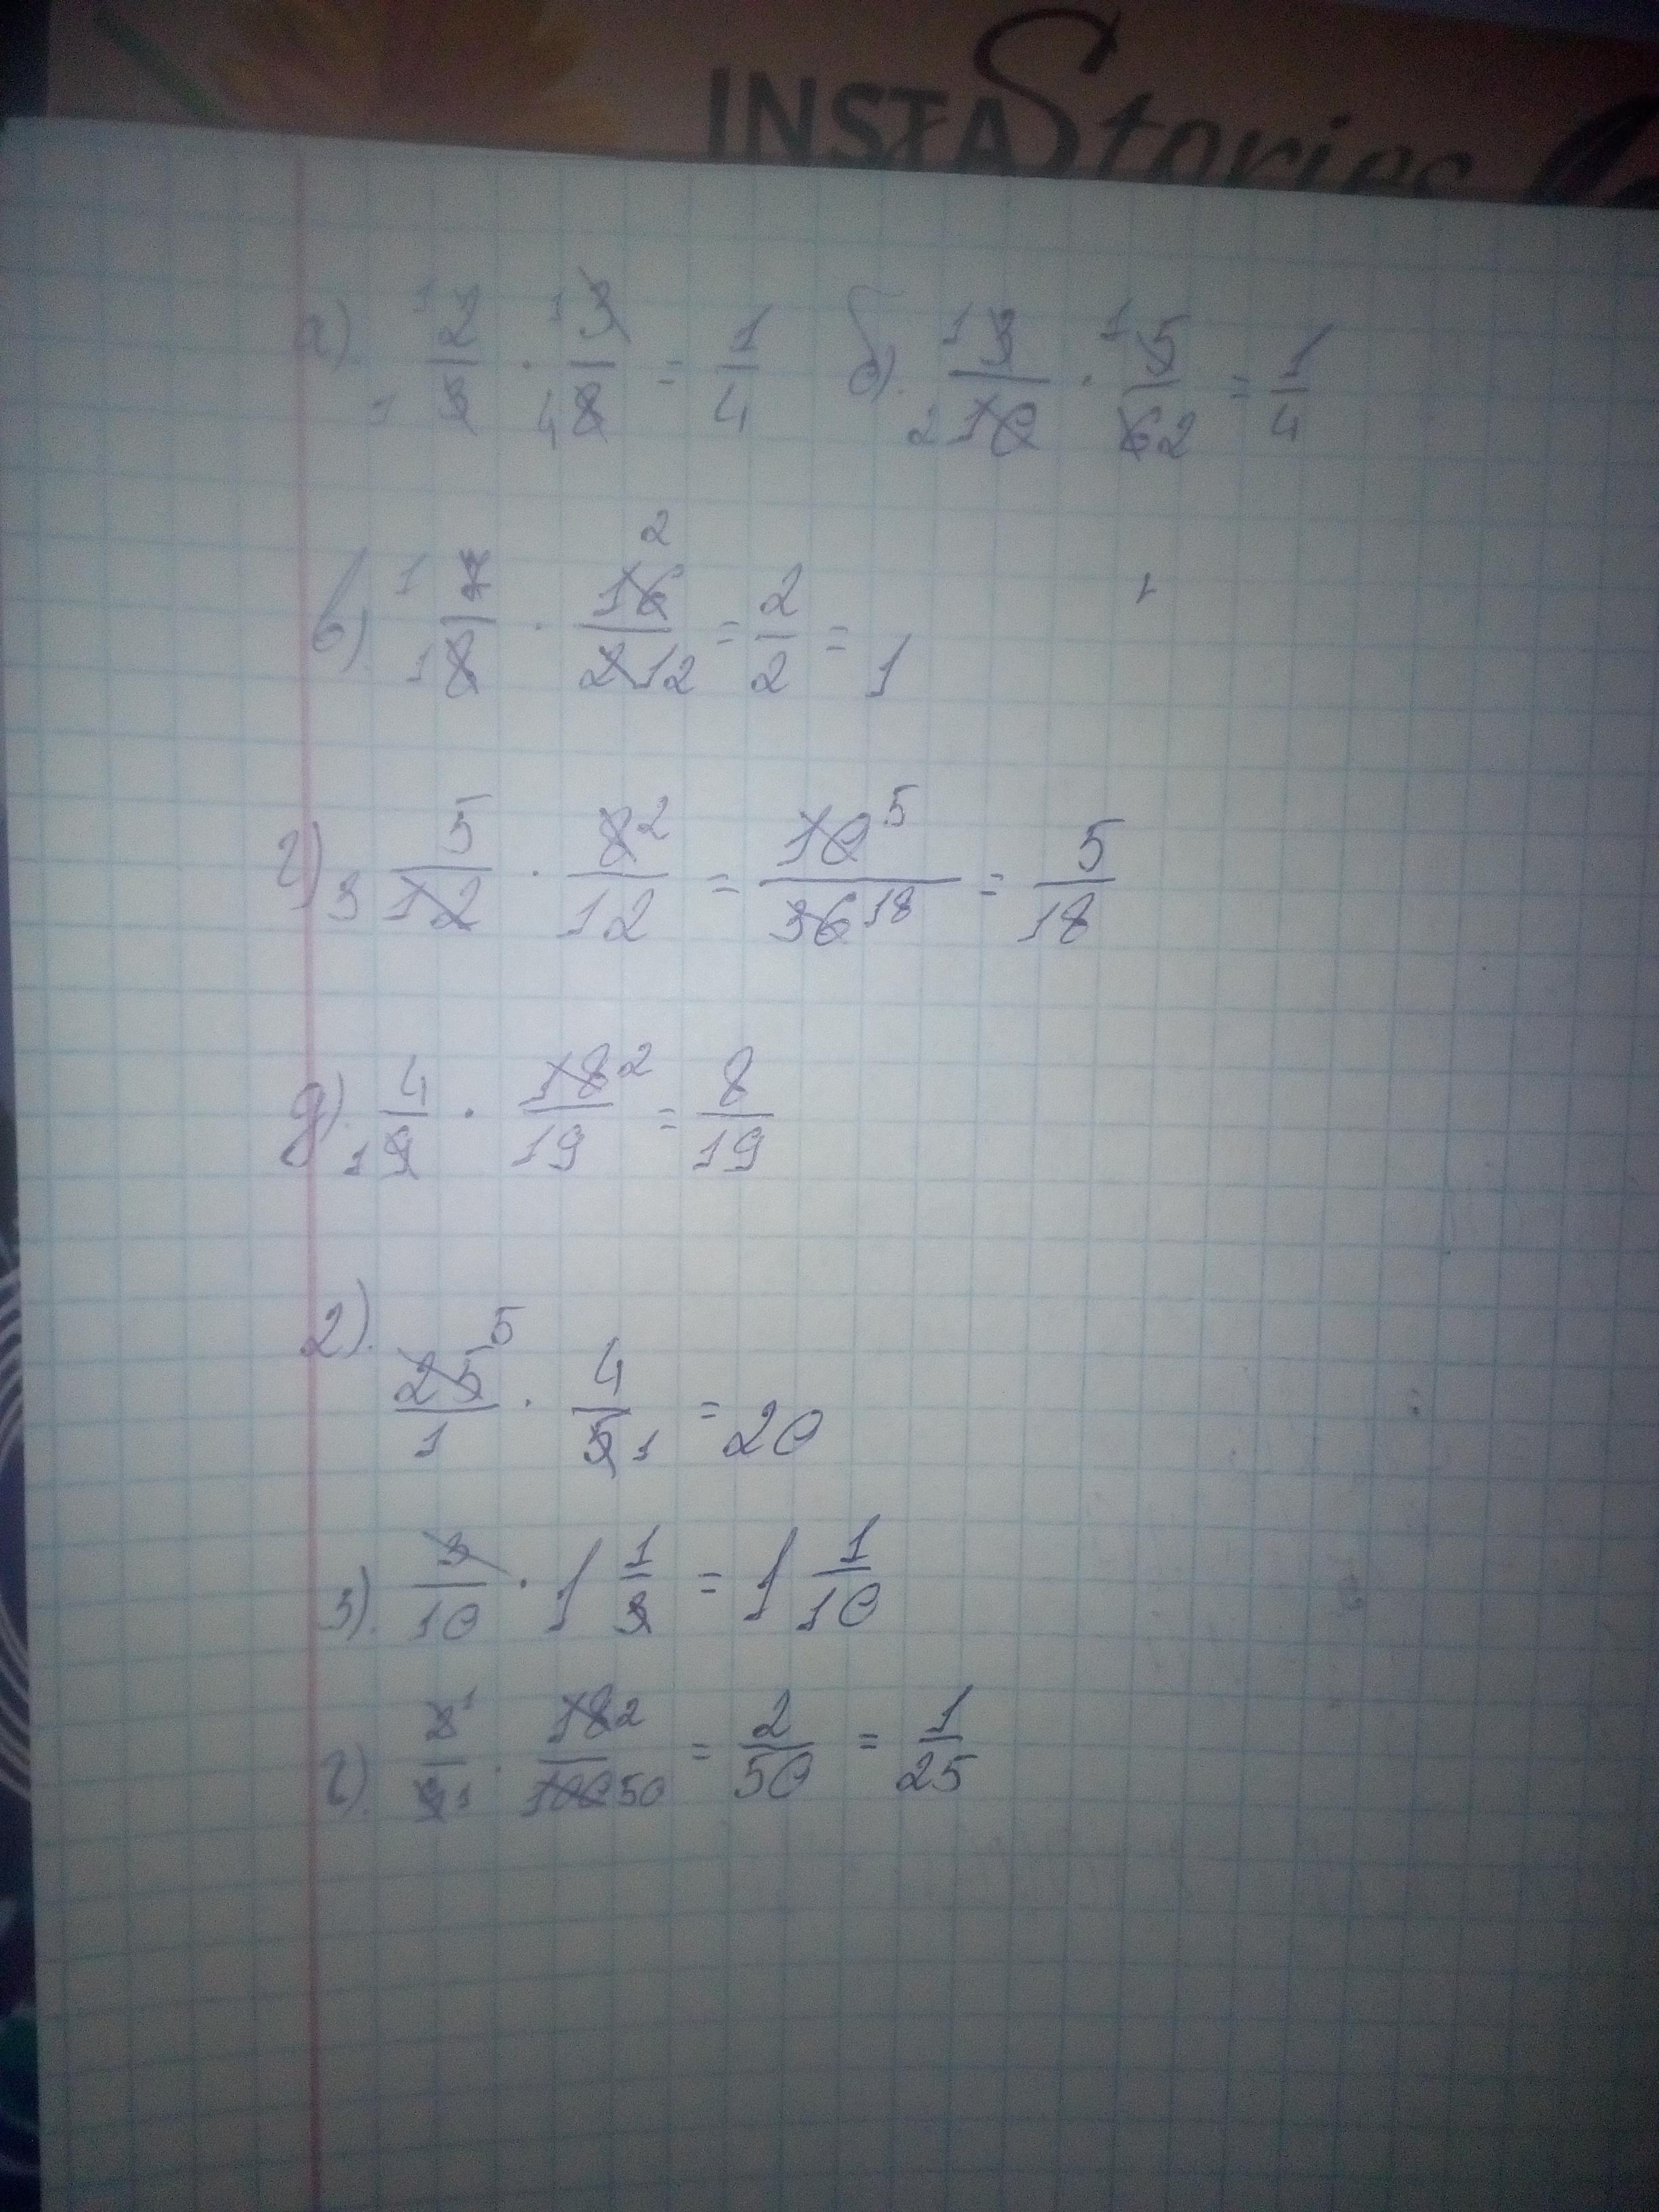 INSTA Stories
а). 1 2/3 1 · 1 3/8 4 = 1/4 б). 1 3/10 2 · 1 5/6 2 = 1/4
в). 1 7/8 1 · 16 2/21 2 = 2/2 = 1
г) 3 5/12 · 8 2/12 = 10 5/36 18 = 5/18
д). 1 4/9 · 18 2/19 = 8/19
2). 25 5/1 · 4/5 1 = 20
3). 3/10 · 1 1/3 = 1 1/10
г). 2 1/9 1 · 18 2/100 50 = 2/50 = 1/25